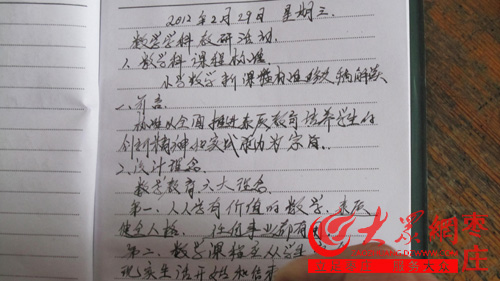 2012年2月29日 星期三.
数学学科教研活动
1、数学科课程标准.
小学数学新课程标准修改稿解读
一、前言.
标准以全面推进素质教育培养学生的
创新精神和实践能力为宗旨.
2、设计理念.
数学教育六大理念.
第一、人人学有价值的数学,素质
健全人格. 任何事业都有
第二、数学课程要从学生
现实生活开始和结束
大众网枣庄